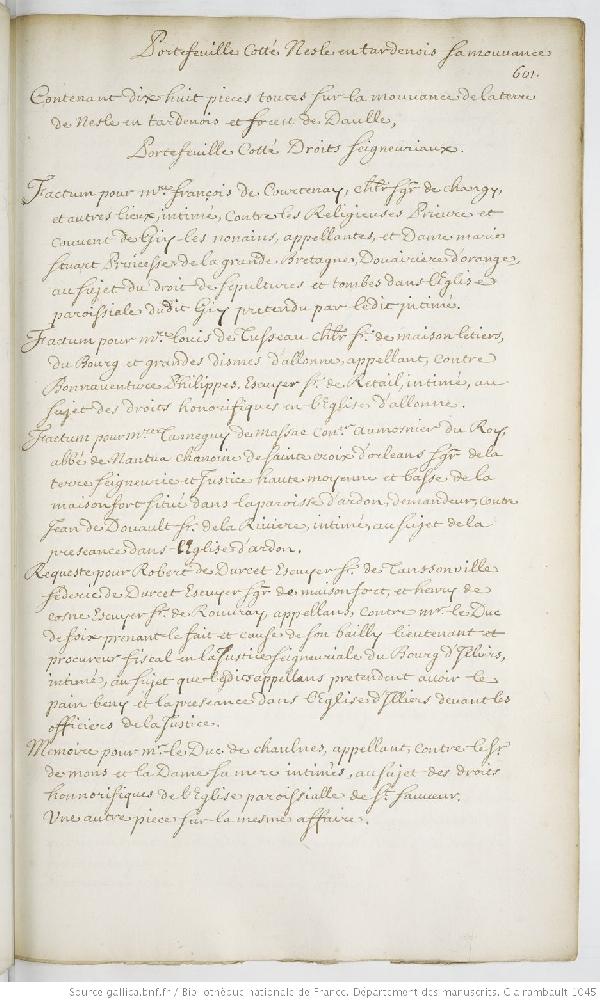 Portefeuille Cotté Nesle en tardenois sa mouvance
601.
Contenant dix huit pieces toutes sur la mouvance de la terre
de Nesle en tardenois et forest de Daulle,
Portefeuille Cotté Droits seigneuriaux.
Factum pour mre. françois de Courtenay, chlr. sgr. de changy,
et autres lieux, intimé, Contre les Religieuses Prieure et
couvent de Giy-les nonains, appellantes, et Dame marie
stuart Princesse de la grande Bretagne, Douairiere d'orange,
au sujet du droit de sepultures et tombes dans l'Eglise
paroissiale dudit Giy pretendu par ledit intimé.
Factum pour mre. Louis de Tusseau chlr. sr. de maisontiers,
du Bourg et grandes dismes d'allonne, appellant, contre
Bonnaventure Philippes, Escuyer sr. de Retail, intimé, au
sujet des droits honorifiques en l'Eglise d'allonne.
Factum pour mre. Tanneguy de massac conr. aumosnier du Roy,
abbé de Nantua chanoine de sainte croix d'orleans sgr. de la
terre seigneurie et Justice haute moyenne et basse de la
maisonfort sitüé dans la paroisse d'ardon, demandeur, contre
Jean de Douault sr. de la Riviere, intimé, au sujet de la
preseance dans l'Eglise d'ardon.
Requeste pour Robert de Durcet Escuyer sr. de Tanssonville
federic de Durcet Escuyer sgr. de maisonfort, et henry de
cosne Escuyer sr. de Rouvray, appellans, contre mr. le Duc
de foix prenant le fait et cause de son bailly lieutenant et
procureur fiscal en la Justice seigneuriale du Bourg d'Illiers,
intimé, au sujet que lesdits appellans pretendent avoir le
pain beny et la preseance dans l'Eglise d'Illiers devant les
officiers de la Justice.
Memoire pour mr. le Duc de chaulnes, appellant, contre le sr.
de mons et la Dame sa mere intimés, au sujet des droits
honnorifiques de l'Eglise paroissialle de st. sauveur.
Une autre piece sur la mesme affaire.
Source gallica.bnf.fr / Bibliothèque nationale de France. Département des manuscrits. Clairambault 1045